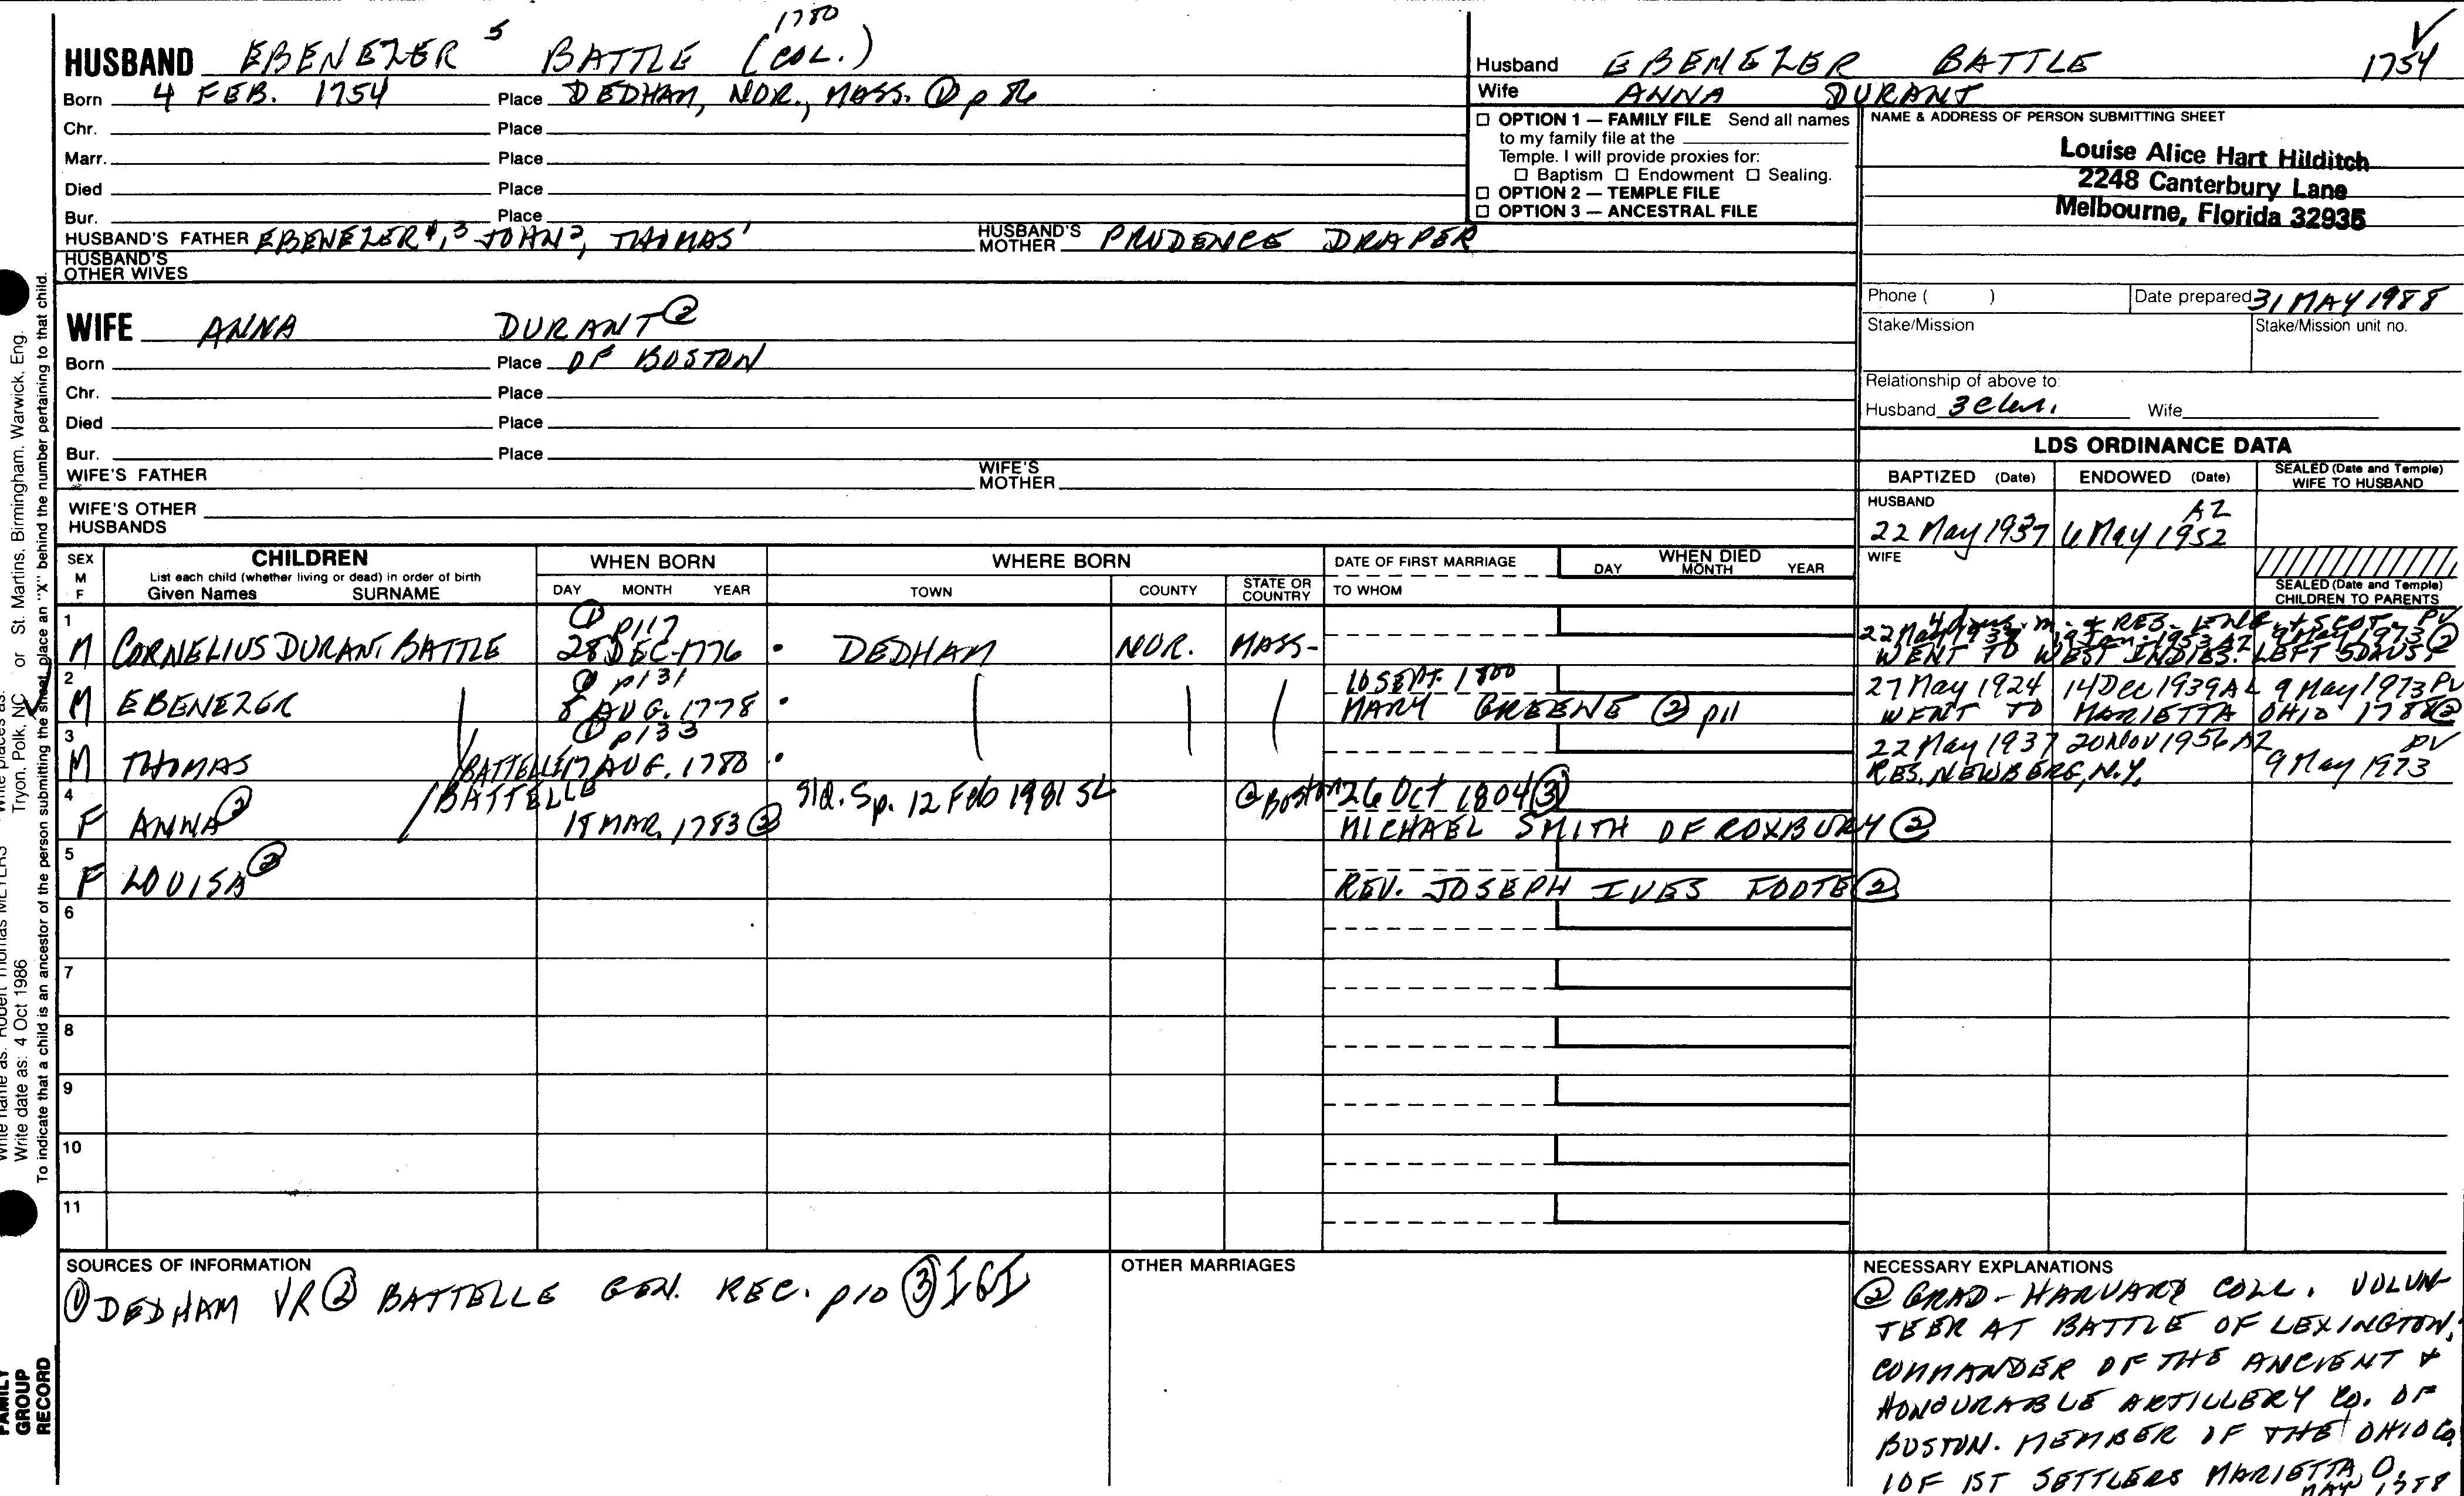 1780
HUSBAND EBENEZER 5 BATTLE (COL.)
Born 4 FEB. 1754 Place DEDHAM, NOR., MASS. ① p 86
Chr. Place
Marr. Place
Died Place
Bur. Place
HUSBAND'S FATHER EBENEZER 4, 3 JOHN 2, THOMAS 1 HUSBAND'S MOTHER PRUDENCE DRAPER
HUSBAND'S OTHER WIVES
WIFE ANNA DURANT ②
Born Place OF BOSTON
Chr. Place
Died Place
Bur. Place
WIFE'S FATHER WIFE'S MOTHER
WIFE'S OTHER HUSBANDS
Husband EBENEZER BATTLE 1754
Wife ANNA DURANT
☐ OPTION 1 — FAMILY FILE Send all names
to my family file at the
Temple. I will provide proxies for:
☐ Baptism ☐ Endowment ☐ Sealing.
☐ OPTION 2 — TEMPLE FILE
☐ OPTION 3 — ANCESTRAL FILE
NAME & ADDRESS OF PERSON SUBMITTING SHEET
Louise Alice Hart Hilditch
2248 Canterbury Lane
Melbourne, Florida 32935
Phone ( ) Date prepared 31 MAY 1988
Stake/Mission Stake/Mission unit no.
Relationship of above to:
Husband 3 Wife
LDS ORDINANCE DATA
BAPTIZED (Date) ENDOWED (Date) SEALED (Date and Temple) WIFE TO HUSBAND
HUSBAND
22 May 1937 6 May 1952 AZ
WIFE
SEALED (Date and Temple)
CHILDREN TO PARENTS
SEX M F CHILDREN WHEN BORN WHERE BORN DATE OF FIRST MARRIAGE WHEN DIED
List each child (whether living or dead) in order of birth
Given Names SURNAME DAY MONTH YEAR TOWN COUNTY STATE OR COUNTRY TO WHOM DAY MONTH YEAR
1 ① p117 4 daus. m. & RES. ENG. & SCOT. PV
M CORNELIUS DURANT BATTLE 28 DEC. 1776 DEDHAM NOR. MASS- 22 May 1937 19 Jan. 1953 AZ 9 May 1973 ②
WENT TO WEST INDIES. LEFT 5 DAUS.
2 ① p131 10 SEPT. 1800 27 May 1924 14 Dec 1939 AL 9 May 1973 PV
M EBENEZER 8 AUG. 1778 MARY GREENE ② p11 WENT TO MARIETTA OHIO 1788 ②
3 ① p133 22 May 1937 20 Nov 1956 AZ PV
M THOMAS BATTELLE 17 AUG. 1780 RES. NEWBERG, N.Y. 9 May 1973
4 BATTELLE Sld. Sp. 12 Feb 1981 SL @ Boston 26 Oct 1804 ③
F ANNA ② 18 MAR, 1783 ② MICHAEL SMITH OF ROXBURY ②
5
F LOUISA ② REV. JOSEPH IVES FOOTE ②
6
7
8
9
10
11
SOURCES OF INFORMATION
① DEDHAM VR ② BATTELLE GEN. REC. p10 ③ IGI
OTHER MARRIAGES
NECESSARY EXPLANATIONS
② GRAD - HARVARD COLL. VOLUN-
TEER AT BATTLE OF LEXINGTON,
COMMANDER OF THE ANCIENT &
HONOURABLE ARTILLERY CO. OF
BOSTON. MEMBER OF THE OHIO CO.
1 OF 1ST SETTLERS MARIETTA, O.
MAY 1788
St. Martins, Birmingham, Warwick, Eng.
Tryon, Polk, NC or
Write date as: 4 Oct 1986
To indicate that a child is an ancestor of the person submitting the sheet, place an "X" behind the number pertaining to that child.
FAMILY
GROUP
RECORD